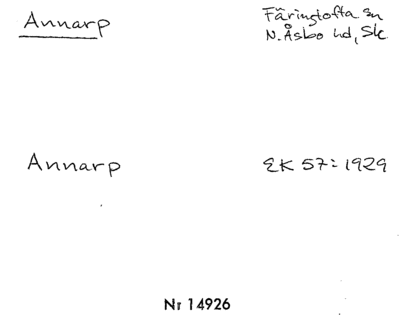 Annarp
Färingtofta sn
N. Åsbo hd, Sk
Annarp
EK 57: 1929
Nr 14926